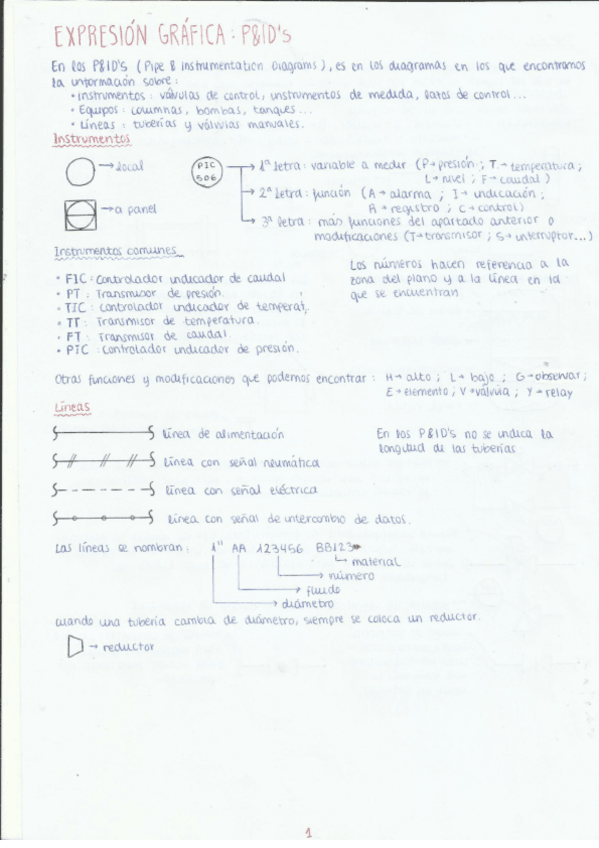 EXPRESIÓN GRÁFICA: P&ID's
En los P&ID's (Pipe & Instrumentation Diagrams), es en los diagramas en los que encontramos
la información sobre:
• instrumentos: válvulas de control, instrumentos de medida, lazos de control...
• Equipos: columnas, bombas, tanques...
• Líneas: tuberías y válvulas manuales.
Instrumentos
→ local
PIC
506
→ 1ª letra: variable a medir (P→presión; T→temperatura;
L→nivel; F→caudal)
→ a panel
→ 2ª letra: función (A→alarma; I→indicación;
R→registro; C→control)
→ 3ª letra: más funciones del apartado anterior o
modificaciones (T→transmisor; S→interruptor...)
Instrumentos comunes
• FIC: Controlador indicador de caudal
• PT: Transmisor de presión.
• TIC: Controlador indicador de temperat.
• TT: Transmisor de temperatura.
• FT: Transmisor de caudal.
• PIC: Controlador indicador de presión.
Los números hacen referencia a la
zona del plano y a la línea en la
que se encuentran
Otras funciones y modificaciones que podemos encontrar: H→alto; L→bajo; G→observar;
E→elemento; V→válvula; Y→relay
Líneas
línea de alimentación
línea con señal neumática
línea con señal eléctrica
línea con señal de intercambio de datos.
En los P&ID's no se indica la
longitud de las tuberías
Las líneas se nombran: 1" AA 123456 BB123
→ material
→ número
→ fluido
→ diámetro
cuando una tubería cambia de diámetro, siempre se coloca un reductor.
→ reductor
1